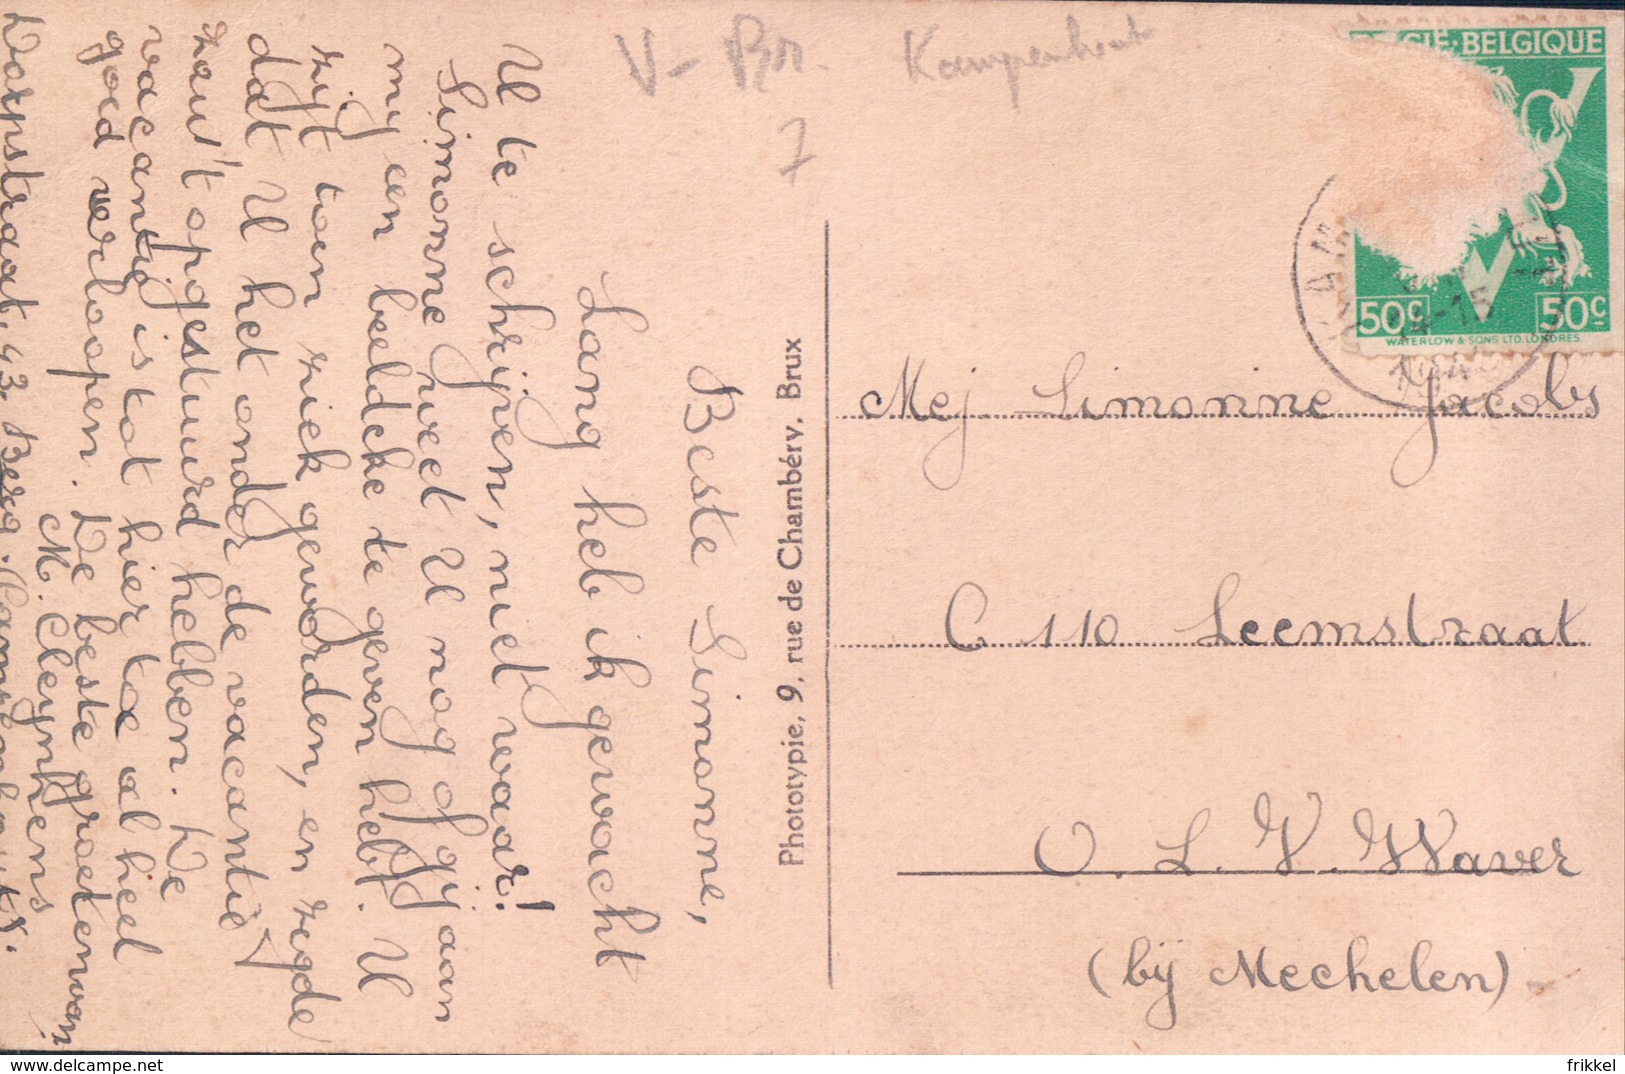 V- Br.
Kampenhout
7
Beste Simonne,
Lang heb ik gewacht
U te schrijven, niet waar!
Simonne weet U nog of gij aan
my een beeldeke te geven hebt. U
zijt toen ziek geworden, en zegde
dat U het onder de vacantie
zou't opgestuurd hebben. De
vacantie is tot hier toe al heel
goed verloopen. De beste groeten van
M. Cleynhens
Dorpstraat, 43, Berg. (Kampenhout).
Phototypie, 9, rue de Chambéry, Brux
BELGIQUE
50c 50c
WATERLOW & SONS LTD. LONDRES.
KAM
14-15
Mej. Simonne Jacobs
C 110 Leemstraat
O. L. V. Waver
(bij Mechelen)
frikkel